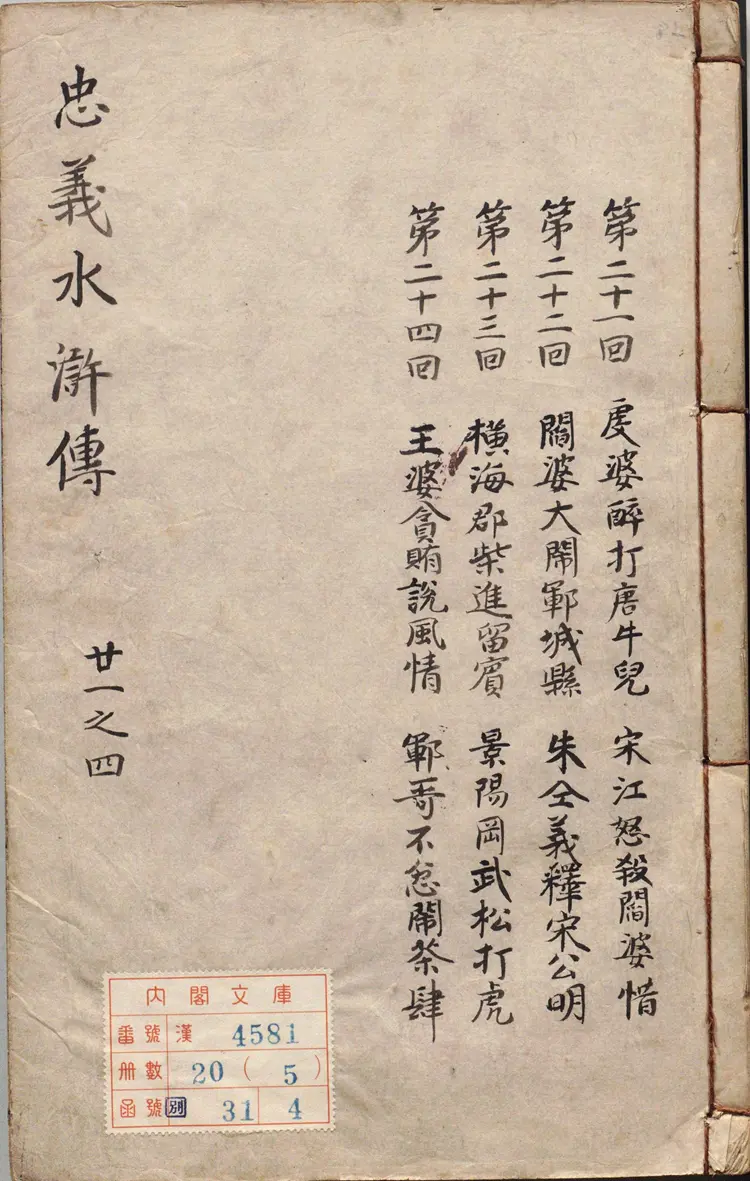 第二十一回 虔婆醉打唐牛兒 宋江怒殺閻婆惜
第二十二回 閻婆大鬧鄆城縣 朱仝義釋宋公明
第二十三回 橫海郡柴進留賓 景陽岡武松打虎
第二十四回 王婆貪賄說風情 鄆哥不忿鬧茶肆
忠義水滸傳 廿一之四
內閣文庫
番號 漢 4581
冊數 20 (5)
函號 別 31 4